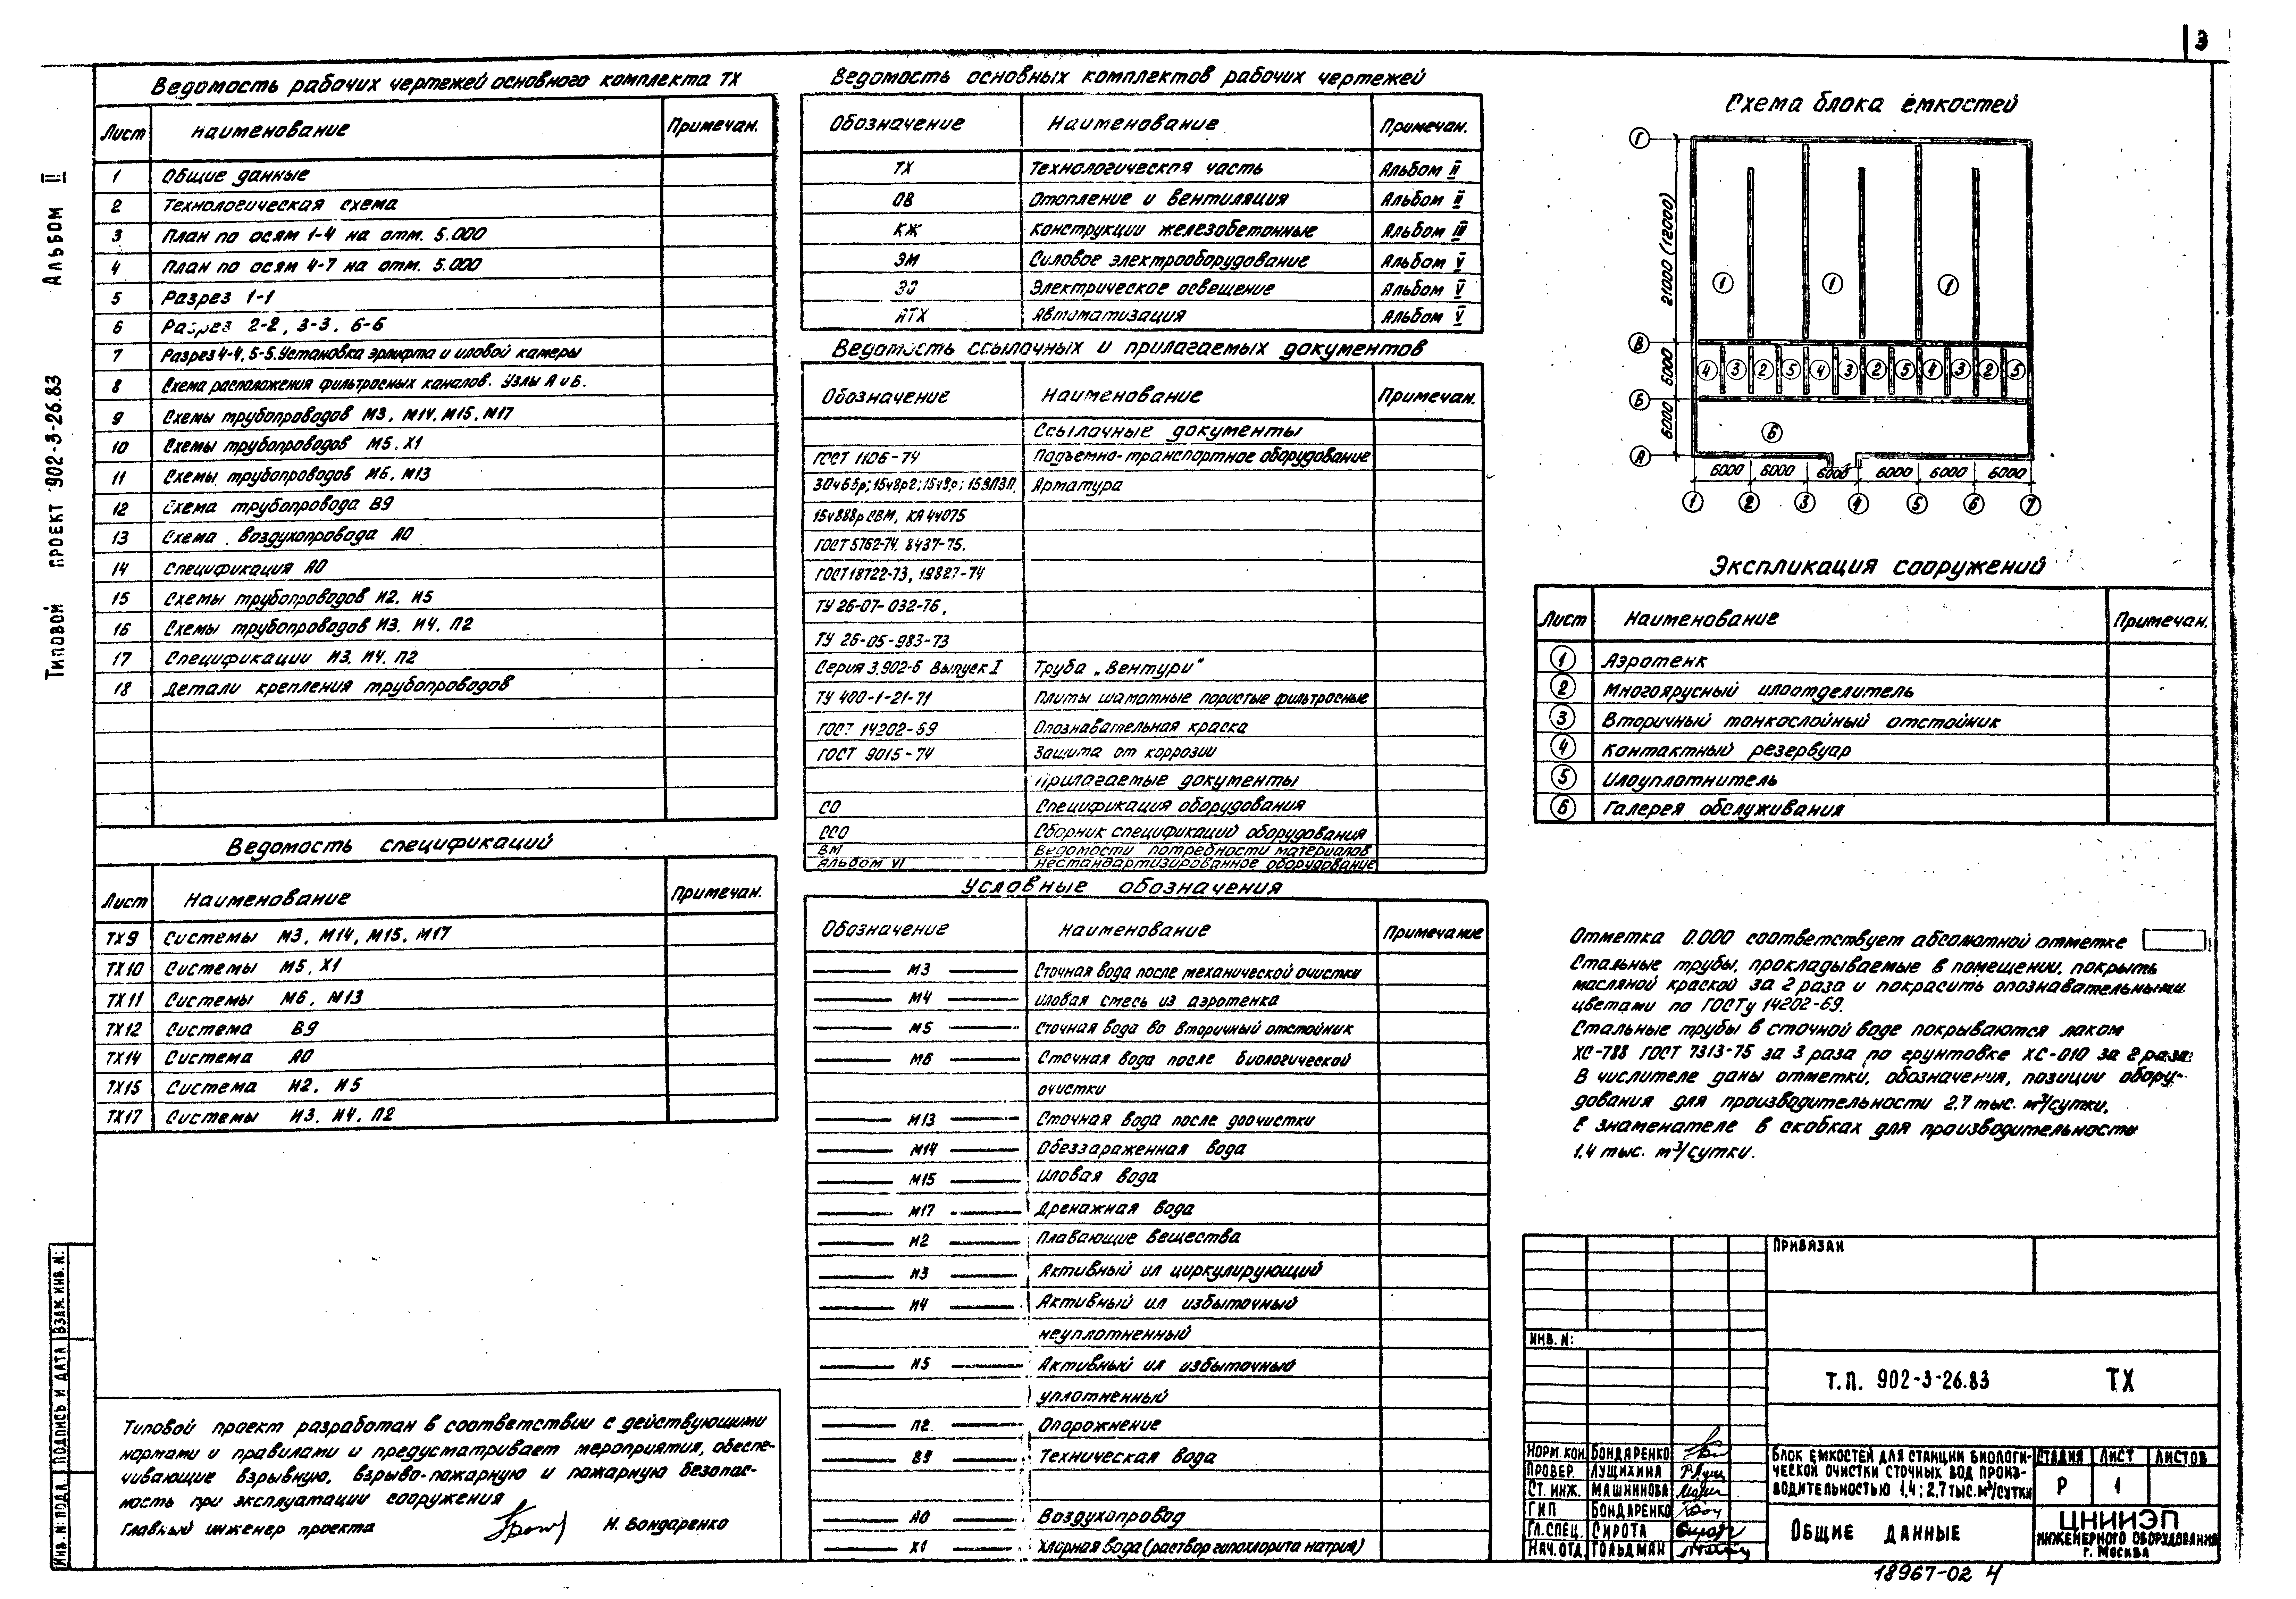 3
Альбом II
Типовой проект 902-3-26.83
Ведомость рабочих чертежей основного комплекта ТХ
Лист Наименование Примечан.
1 Общие данные
2 Технологическая схема
3 План по осям 1-4 на отм. 5.000
4 План по осям 4-7 на отм. 5.000
5 Разрез 1-1
6 Разрез 2-2, 3-3, 6-6
7 Разрез 4-4, 5-5. Установка эрлифта и иловой камеры
8 Схема расположения фильтросных каналов. Узлы А и Б.
9 Схемы трубопроводов М3, М14, М15, М17
10 Схемы трубопроводов М5, Х1
11 Схемы трубопроводов М6, М13
12 Схема трубопровода В9
13 Схема воздухопровода А0
14 Спецификация А0
15 Схемы трубопроводов И2, И5
16 Схемы трубопроводов И3, И4, П2
17 Спецификации И3, И4, П2
18 Детали крепления трубопроводов
Ведомость спецификаций
Лист Наименование Примечан.
ТХ9 Системы М3, М14, М15, М17
ТХ10 Системы М5, Х1
ТХ11 Системы М6, М13
ТХ12 Система В9
ТХ14 Система А0
ТХ15 Система И2, И5
ТХ17 Системы И3, И4, П2
Типовой проект разработан в соответствии с действующими
нормами и правилами и предусматривает мероприятия, обеспе-
чивающие взрывную, взрыво-пожарную и пожарную безопас-
ность при эксплуатации сооружения
Главный инженер проекта Н. Бондаренко
Взам. инв. N:
Подпись и дата
Инв. N: подл.
Ведомость основных комплектов рабочих чертежей
Обозначение Наименование Примечан.
ТХ Технологическая часть Альбом II
ОВ Отопление и вентиляция Альбом II
КЖ Конструкции железобетонные Альбом III
ЭМ Силовое электрооборудование Альбом V
ЭО Электрическое освещение Альбом V
АТХ Автоматизация Альбом V
Ведомость ссылочных и прилагаемых документов
Обозначение Наименование Примечан.
Ссылочные документы
ГОСТ 1106-74 Подъемно-транспортное оборудование
30ч6бр; 15ч8р2; 15ч8р; 15ВП3П, Арматура
15ч888р СВМ, КА 44075
ГОСТ 5762-74, 8437-75,
ГОСТ 18722-73, 19827-74
ТУ 26-07-032-76,
ТУ 26-05-983-73
Серия 3.902-6 Выпуск I Труба „Вентури"
ТУ 400-1-21-71 Плиты шамотные пористые фильтросные
ГОСТ 14202-69 Опознавательная краска
ГОСТ 9015-74 Защита от коррозии
Прилагаемые документы
СО Спецификация оборудования
ССО Сборник спецификаций оборудования
ВМ Ведомости потребности материалов
Альбом VI Нестандартизированное оборудование
Условные обозначения
Обозначение Наименование Примечание
М3 Сточная вода после механической очистки
М4 Иловая смесь из аэротенка
М5 Сточная вода во вторичный отстойник
М6 Сточная вода после биологической
очистки
М13 Сточная вода после доочистки
М14 Обеззараженная вода
М15 Иловая вода
М17 Дренажная вода
И2 Плавающие вещества
И3 Активный ил циркулирующий
И4 Активный ил избыточный
неуплотненный
И5 Активный ил избыточный
уплотненный
П2 Опорожнение
В9 Техническая вода
А0 Воздухопровод
Х1 Хлорная вода (раствор гипохлорита натрия)
Схема блока ёмкостей
Г
В
Б
А
21000 (12000)
6000
6000
1 1 1
4 3 2 5 4 3 2 5 4 3 2 5
6
6000 6000 6000 6000 6000 6000
1 2 3 4 5 6 7
Экспликация сооружений
Лист Наименование Примечан.
1 Аэротенк
2 Многоярусный илоотделитель
3 Вторичный тонкослойный отстойник
4 Контактный резервуар
5 Илоуплотнитель
6 Галерея обслуживания
Отметка 0.000 соответствует абсолютной отметке
Стальные трубы, прокладываемые в помещении, покрыть
масляной краской за 2 раза и покрасить опознавательными
цветами по ГОСТу 14202-69.
Стальные трубы в сточной воде покрываются лаком
ХС-788 ГОСТ 7313-75 за 3 раза по грунтовке ХС-010 за 2 раза.
В числителе даны отметки, обозначения, позиции обору-
дования для производительности 2,7 тыс. м³/сутки,
в знаменателе в скобках для производительности
1,4 тыс. м³/сутки.
Привязан
Инв. N:
Т.П. 902-3-26.83 ТХ
Норм. кон. Бондаренко
Провер. Лущихина
Ст. инж. Машнинова
ГИП Бондаренко
Гл. спец. Сирота
Нач. отд. Гольдман
Блок емкостей для станции биологи-
ческой очистки сточных вод произ-
водительностью 1,4; 2,7 тыс. м³/сутки
Стадия Лист Листов
Р 1
Общие данные
ЦНИИЭП
инженерного оборудования
г. Москва
18967-02 4